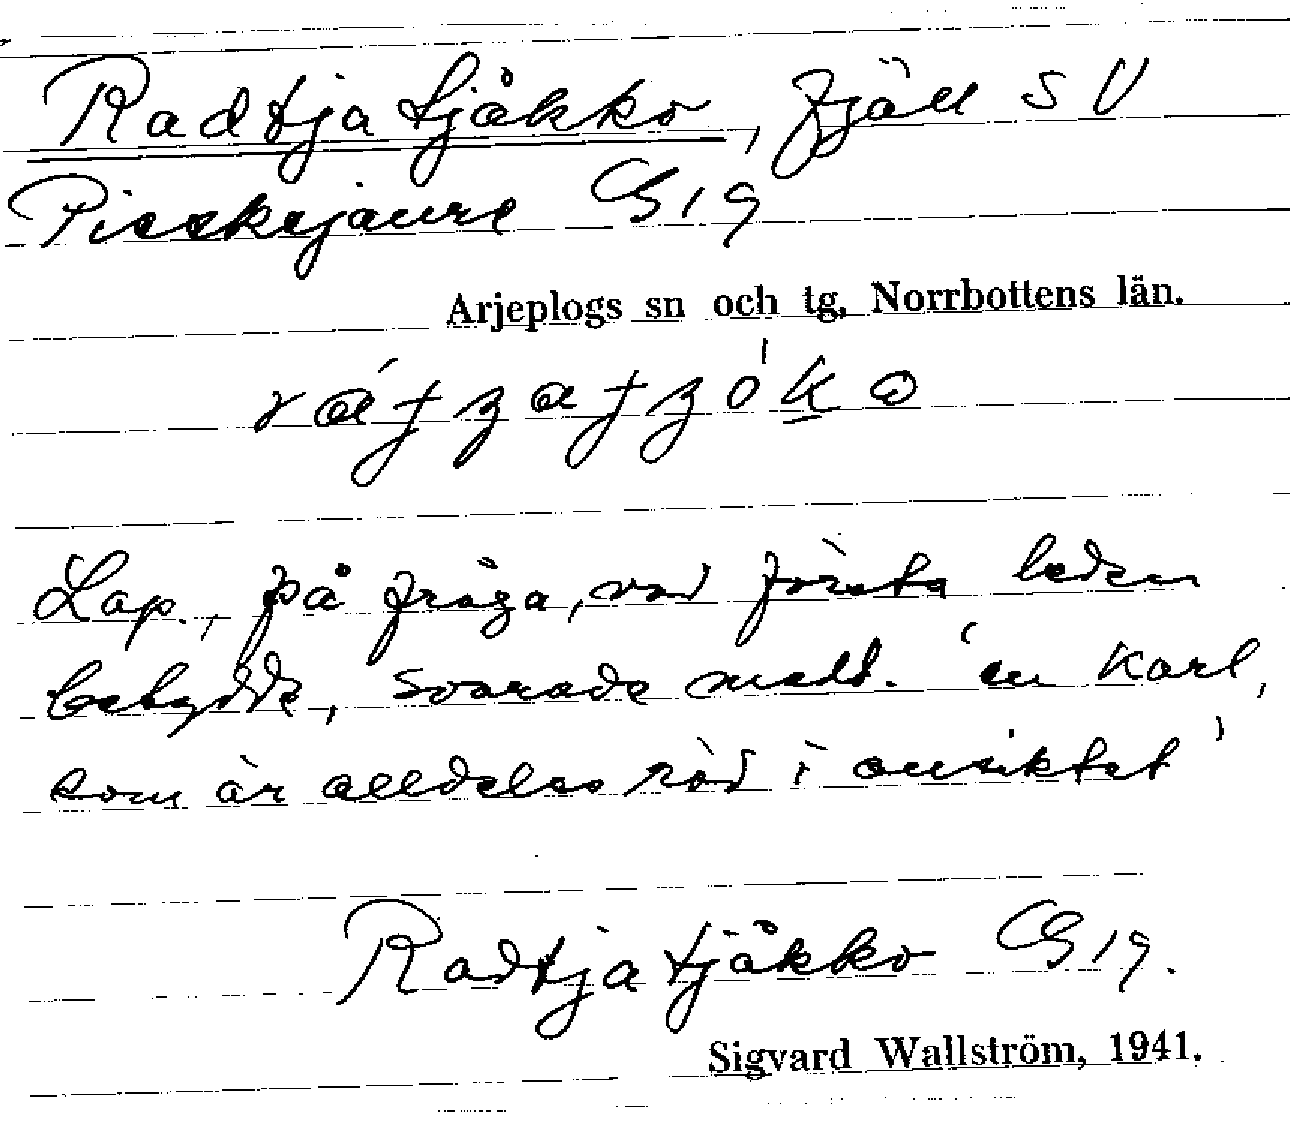 Radtjatjåkko, fjäll SV
Pieskejaure G 19
Arjeplogs sn och tg, Norrbottens län.
Lap., på fråga, vad första leden
betydde, svarade medd. 'en karl,
som är alldeles röd i ansiktet'
Radtjatjåkko G 19.
Sigvard Wallström, 1941.